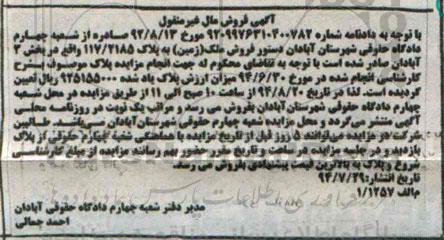 آگهی فروش مال غیرمنقول
با توجه به دادنامه شماره ۹۲۰۹۹۷۶۳۱۰۴۰۰۷۸۲ مورخ ۹۲/۸/۱۳ صادره از شعبه چهارم
دادگاه حقوقی شهرستان آبادان دستور فروش ملک(زمین) به پلاک ۱۱۷/۲۱۸۵ واقع در بخش ۳
آبادان صادر شده است با توجه به تقاضای محکوم له جهت انجام مزایده پلاک موصوف بشرح
کارشناسی انجام شده در مورخ ۹۴/۶/۳۰ میزان ارزش پلاک یاد شده ۹۲۵۱۵۵۰۰۰ ریال تعیین
گردیده است. لذا در تاریخ ۹۴/۸/۲۰ از ساعت ۱۰ صبح الی ۱۱ از طریق مزایده در محل شعبه
چهارم دادگاه حقوقی شهرستان آبادان بفروش می رسد و مراتب یک نوبت در روزنامه محلی
آگهی منتشر می گردد و محل مزایده شعبه چهارم حقوقی شهرستان آبادان می باشد. طالبین
شرکت در مزایده می توانند ۵ روز قبل از تاریخ مزایده با هماهنگی شعبه چهارم حقوقی از پلاک
بازدید و در جلسه مزایده در ساعت و تاریخ مقرر حضور بهم رسانند مزایده از مبلغ کارشناسی
شروع و پلاک به بالاترین قیمت پیشنهادی بفروش می رسد.
تاریخ انتشار: ۹۴/۷/۲۹
م الف ۱/۱۲۵۷
مدیر دفتر شعبه چهارم دادگاه حقوقی آبادان
احمد جمالی